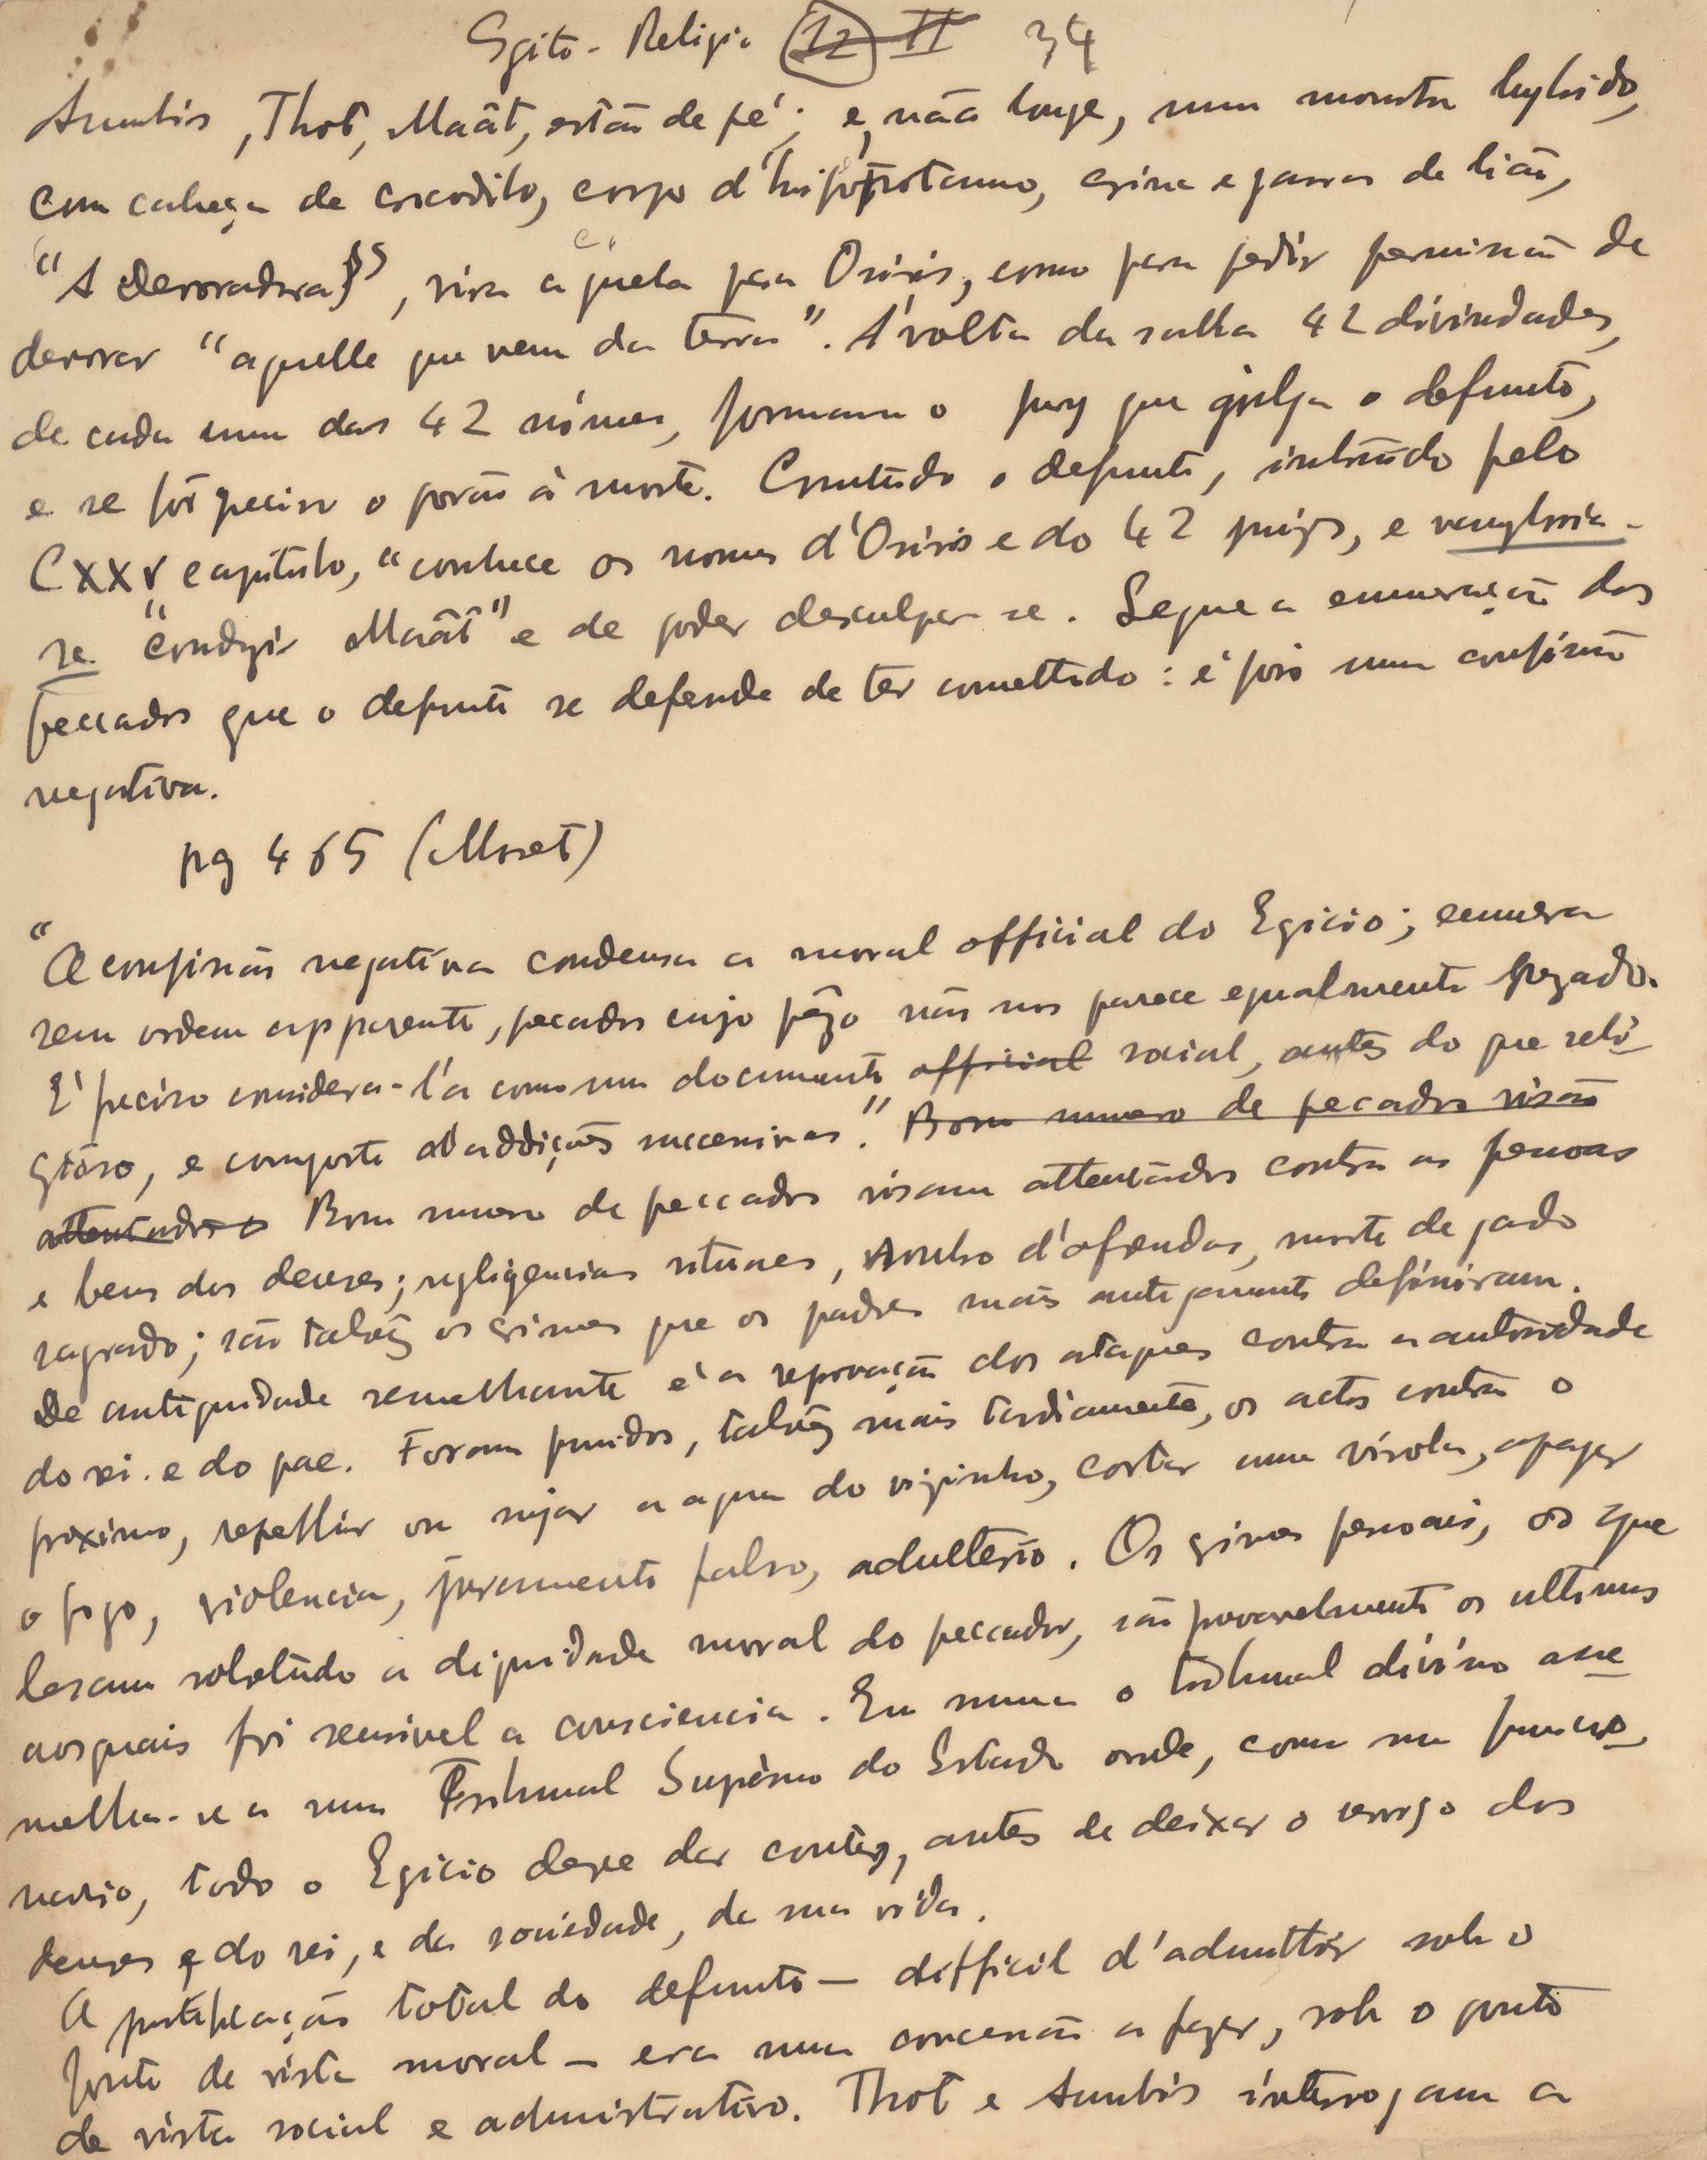 Egito - Religião 12 II 34
Anubis, Thot, Maât, estão de pé; e, não longe, num monstro hybrido,
com cabeça de crocodilo, corpo d'hippopotamo, crina e garras de lião,
"A devoradora", vira a guela para Osiris, como para pedir permissão de
devorar "aquelle que vem da terra". Á volta da salla 42 divindades,
de cada um dos 42 nómes, formam o jury que julga o defunto,
e se fôr preciso o porão á morte. Comtudo o defunto, instruido pelo
CXXV capitulo, "conhece os nomes d'Osiris e do 42 juizes, e vangloria-
se "conduzir Maât" e de poder desculpar-se. Segue a enumeração dos
peccados que o defunto se defende de ter comettido: é pois uma confissão
negativa.
pg 465 (Moret)
"A confissão negativa condensa a moral official do Egicio; enumera
sem ordem apparente, pecados cujo pêzo não nos parece egualmente pezado.
E' preciso considera-l'a como um documento official social, antes do que reli-
gioso, e comporta addições successivas." Bom numero de pecados visão
attentados Bom numero de peccados visam attentados contra as pessoas
e bens dos deuses; negligencias rituaes, roubo d'ofrendas, morte de gado
sagrado; são talvez os crimes que os padres mais antigamente definiram.
De antiguidade semelhante é a reprovação dos ataques contra a autoridade
do rei e do pae. Foram punidos, talvez mais tardiamente, os actos contra o
proximo, repellir ou sujar a agua do vizinho, cortar uma, apagar
o fogo, violencia, juramento falso, adulterio. Os crimes pessoais, os que
lesam sobretudo a dignidade moral do peccador, são provavelmente os ultimos
aos quais foi sensivel a consciencia. Em suma o tribunal divino asse-
melha-se a um Tribunal Supremo do Estado onde, como um funccio-
nario, todo o Egicio deve dar contas, antes de deixar o serviço dos
deuses e do rei, e da sociedade, da sua vida.
A justificação total do defunto - difficil d'admittir sob o
ponto de vista moral - era uma concessão a fazer, sob o ponto
de vista social e administrativo. Thot e Anubis interrogam a